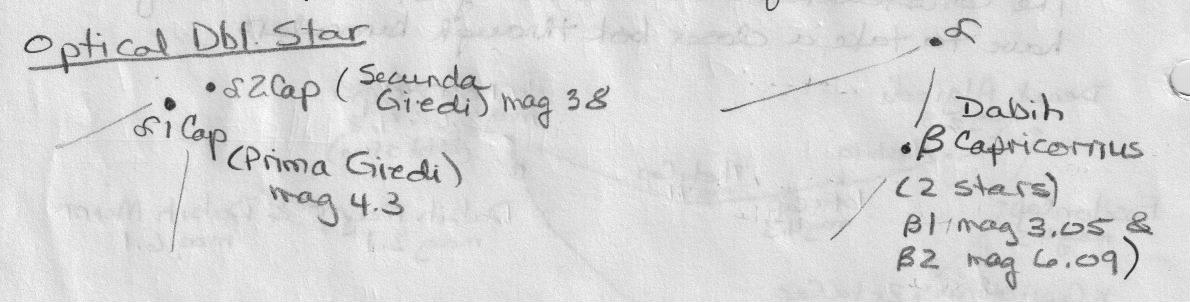 Optical Dbl. Star
α2Cap (Secunda
Giedi) mag 38
α1Cap
(Prima Giedi)
mag 4.3
α
Dabih
β Capricornius
(2 stars)
β1 mag 3.05 &
β2 mag 6.09)